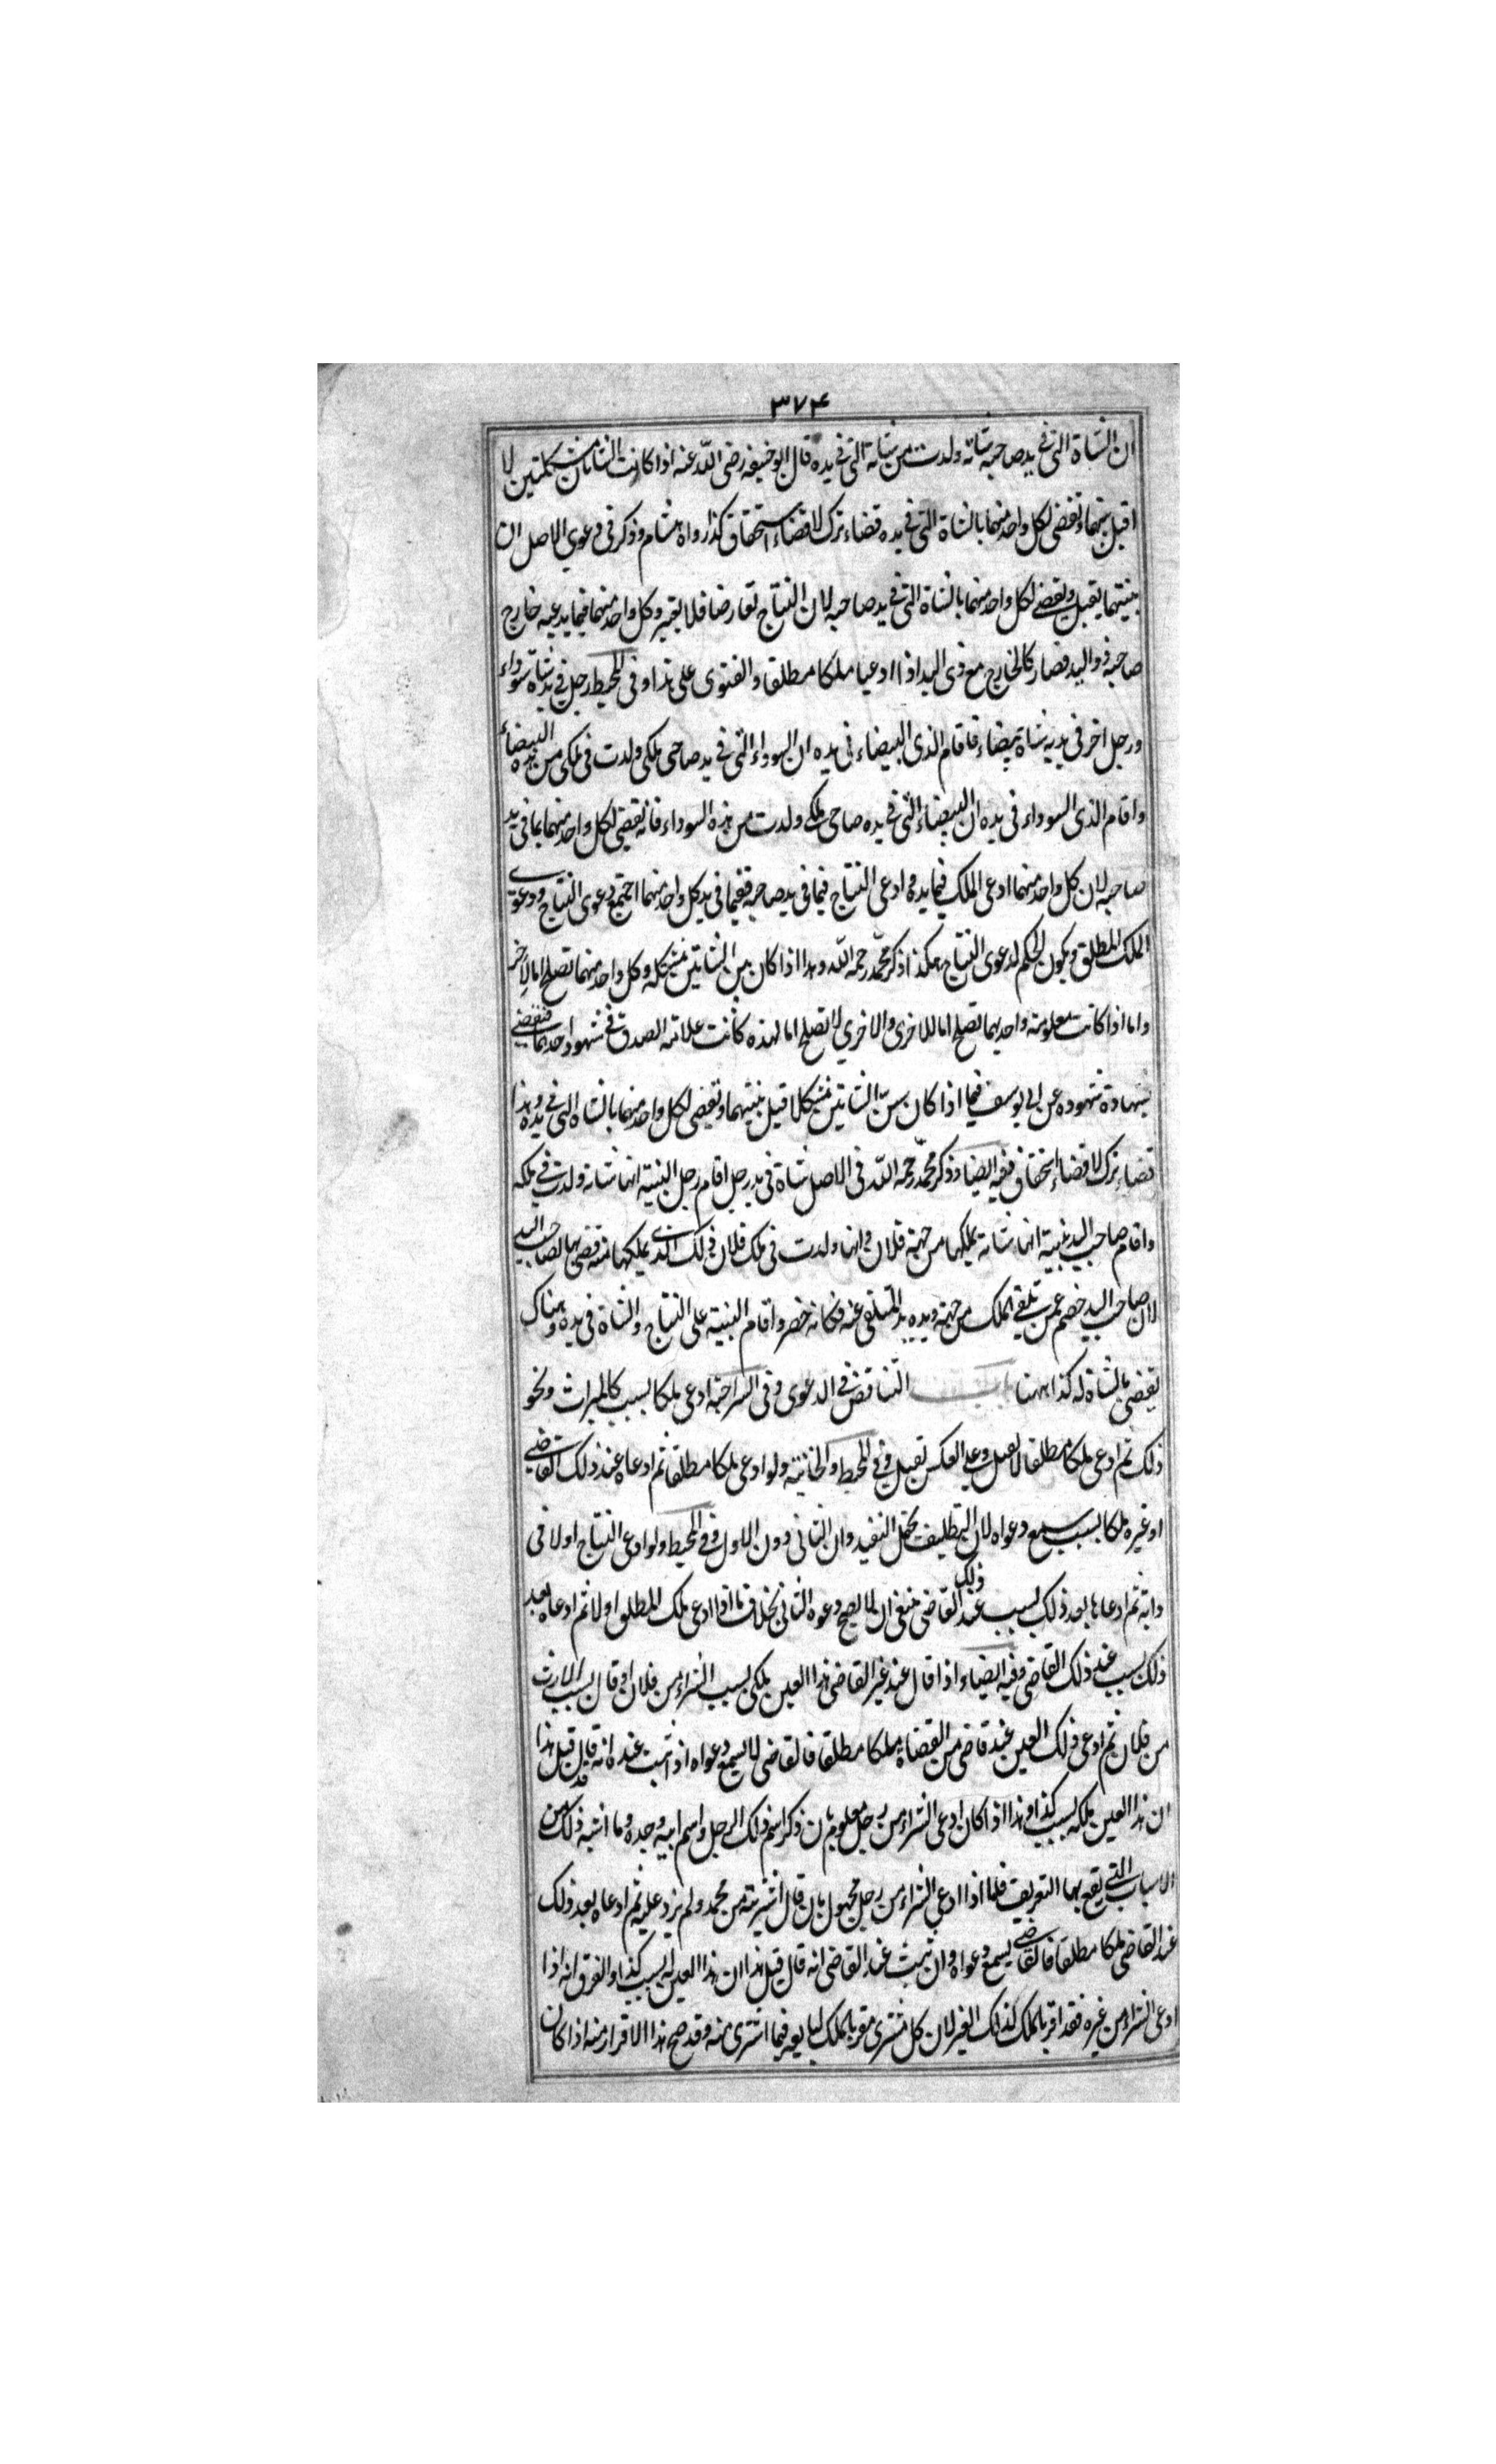 ٣٧٤
ان الشاة التى فى يد صاحبه شاته ولدت من شاته التى فى يده قال ابو حنيفه رضى الله عنه اذا كانت الشاتان مشكلتين لا
اقبل بينهما و تقضى لكل واحد منهما بالشاة التى فى يده قضاء ترك لا قضاء استحقاق كذا رواه هشام و ذكر فى دعوى الاصل ان
بينتهما يقبل و يقضى لكل واحد منهما بالشاة التى فى يد صاحبه لان النتاج تعارضا فلا يعتبر و كل واحد منهما فيما يدعيه خارج
صاحبه ذو اليد فصار كالخارج مع ذى اليد اذا ادعيا ملكا مطلقا و الفتوى على هذا و فى المحيط رجل فى يده شاة سوداء
و رجل اخر فى يديه شاة بيضاء فاقام الذى البيضاء فى يده ان السوداء التى فى يد صاحبى ملكى ولدت فى ملكى من هذه البيضاء
و اقام الذى السوداء فى يده ان البيضاء التى فى يده صاحبى ملكى ولدت من هذه السوداء فانه يقضى لكل واحد منهما بما فى يد
صاحبه لان كل واحد منهما ادعى الملك فيما يده و ادعى النتاج فيما فى يد صاحبه ففيما فى يد كل واحد منهما اجتمع دعوى النتاج و دعوى
الملك المطلق و يكون الحكم لدعوى النتاج هكذا ذكر محمد رحمه الله و هذا اذا كان سن الشاتين مشكله و كل واحد منهما تصلح اما للاخر
و اما اذا كانت معلومة واحديهما تصلح اما للاخرى والاخرى لا تصلح اما لهذه كانت علامة الصدق فى شهود احديهما فتقضى
بشهادة شهوده عن ابى يوسف فيما اذا كان سن الشاتين مشكلا قبل بينتهما و تقضى لكل واحد منهما بالشاة التى فى يده و هذا
قضاء ترك لا قضاء استحقاق فيه ايضا و ذكر محمد رحمه الله فى الاصل شاة فى يد رجل اقام رجل البينة انها شاته ولدت فى ملكه
و اقام صاحب اليد بينة انها شاته يملكها من جهة فلان و انها ولدت فى ملك فلان ذلك الذى يملكها منه قضى بها لصاحب اليد
لان صاحب اليد خصم عمن تلقى الملك من جهته و يده يد المتلقى عنه فكانه حضر و اقام البينة على النتاج و الشاة فى يده و هناك
يقضى بالشاة له كذا ههنا باب التناقض فى الدعوى و فى السراجية ادعى ملكا بسبب كالميراث و نحو
ذلك ثم ادعى ملكا مطلقا لا تقبل و على العكس تقبل و فى المحيط و الخانية و لو ادعى ملكا مطلقا ثم ادعاه عند ذلك القاضى
او غيره ملكا بسبب يسمع دعواه لان التطليف يحتمل التقييد و ان الثانى دون الاول و فى المحيط و لو ادعى النتاج اولا فى
دابة ثم ادعاها بعد ذلك بسبب عند ذلك القاضى ينبغى ان لا يصح دعوه الثانى بخلاف ما اذا ادعى ملك المطلق اولا ثم ادعاه بعد
ذلك بسبب عند ذلك القاضى و فيه ايضا و اذا قال عند غير القاضى هذا العين ملكى بسبب الشراء من فلان او قال بسبب الارث
من فلان ثم ادعى ذلك العين عند قاضى من القضاة ملكا مطلقا فالقاضى لا يسمع دعواه اذا ثبت عنده انه قد قال قبل هذا
ان هذا العين ملكه بسبب كذا و هذا اذا كان ادعى الشراء من رجل معلوم بان ذكر اسم ذلك الرجل و اسم ابيه و جده و ما اشبه ذلك من
الاسباب التى يقع بها التعريف فاما اذا ادعى الشراء من رجل مجهول بان قال اشتريته من محمد و لم يزد عليه ثم ادعاه بعد ذلك
عند القاضى ملكا مطلقا فالقاضى يسمع دعواه و ان ثبت عند القاضى انه قال قبل هذا ان هذا العين له بسبب كذا و الفرق انه اذا
ادعى الشراء من غيره فقد اقر بالملك لذلك الغير لان كل مشترى مقر بالملك لبايعه فيما اشترى منه و قد صح هذا الاقرار منه اذا كان